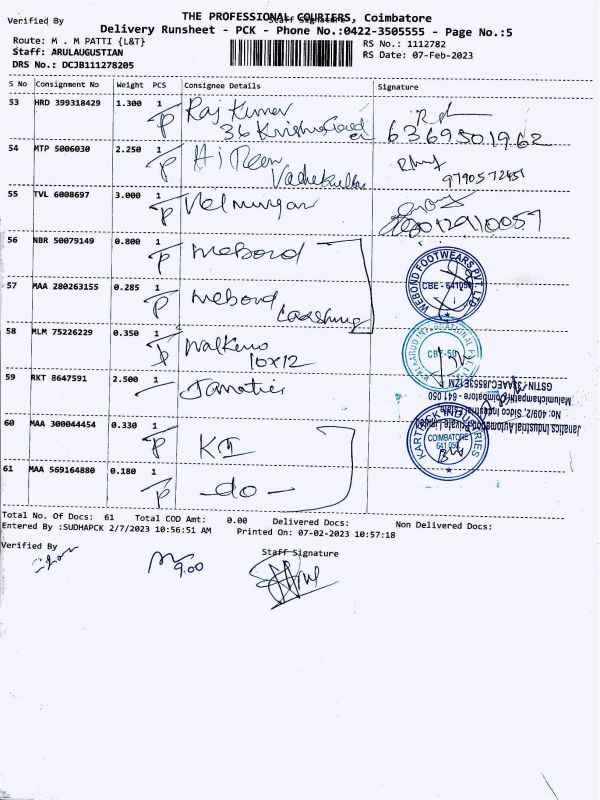 Verified By
Staff Signature
THE PROFESSIONAL COURIERS, Coimbatore
Delivery Runsheet - PCK - Phone No.:0422-3505555 - Page No.:5
Route: M . M PATTI {L&T}
RS No.: 1112782
Staff: ARULAUGUSTIAN
RS Date: 07-Feb-2023
DRS No.: DCJB111278205
S No Consignment No Weight PCS Consignee Details Signature
53 HRD 399318429 1.300 1 Raj Kumar
P 36 6369501962
54 MTP 5006030 2.250 1
P
55 TVL 6008697 3.000 1 Velmurugan
P
56 NBR 50079149 0.800 1 Webord
P
WEBOND FOOTWEARS PVT. LTD.
CBE - 641050
57 MAA 280263155 0.285 1 Webord
P
58 MLM 75226229 0.350 1
P 10x12
CBE-50
GSTIN: 33AAECJ8553E1ZM
59 RKT 8647591 2.500 1 Janatics
Malumichampatti, Coimbatore - 641 050
No: 409/2, Sidco Industrial Estate
Janatics Industrial Automation Private Limited
60 MAA 300044454 0.330 1 KI
P
KARTHICK INDUSTRIES
COIMBATORE
641 050
61 MAA 569164880 0.180 1 - do -
P
Total No. Of Docs: 61 Total COD Amt: 0.00 Delivered Docs: Non Delivered Docs:
Entered By :SUDHAPCK 2/7/2023 10:56:51 AM Printed On: 07-02-2023 10:57:18
Verified By
Staff Signature
9.00